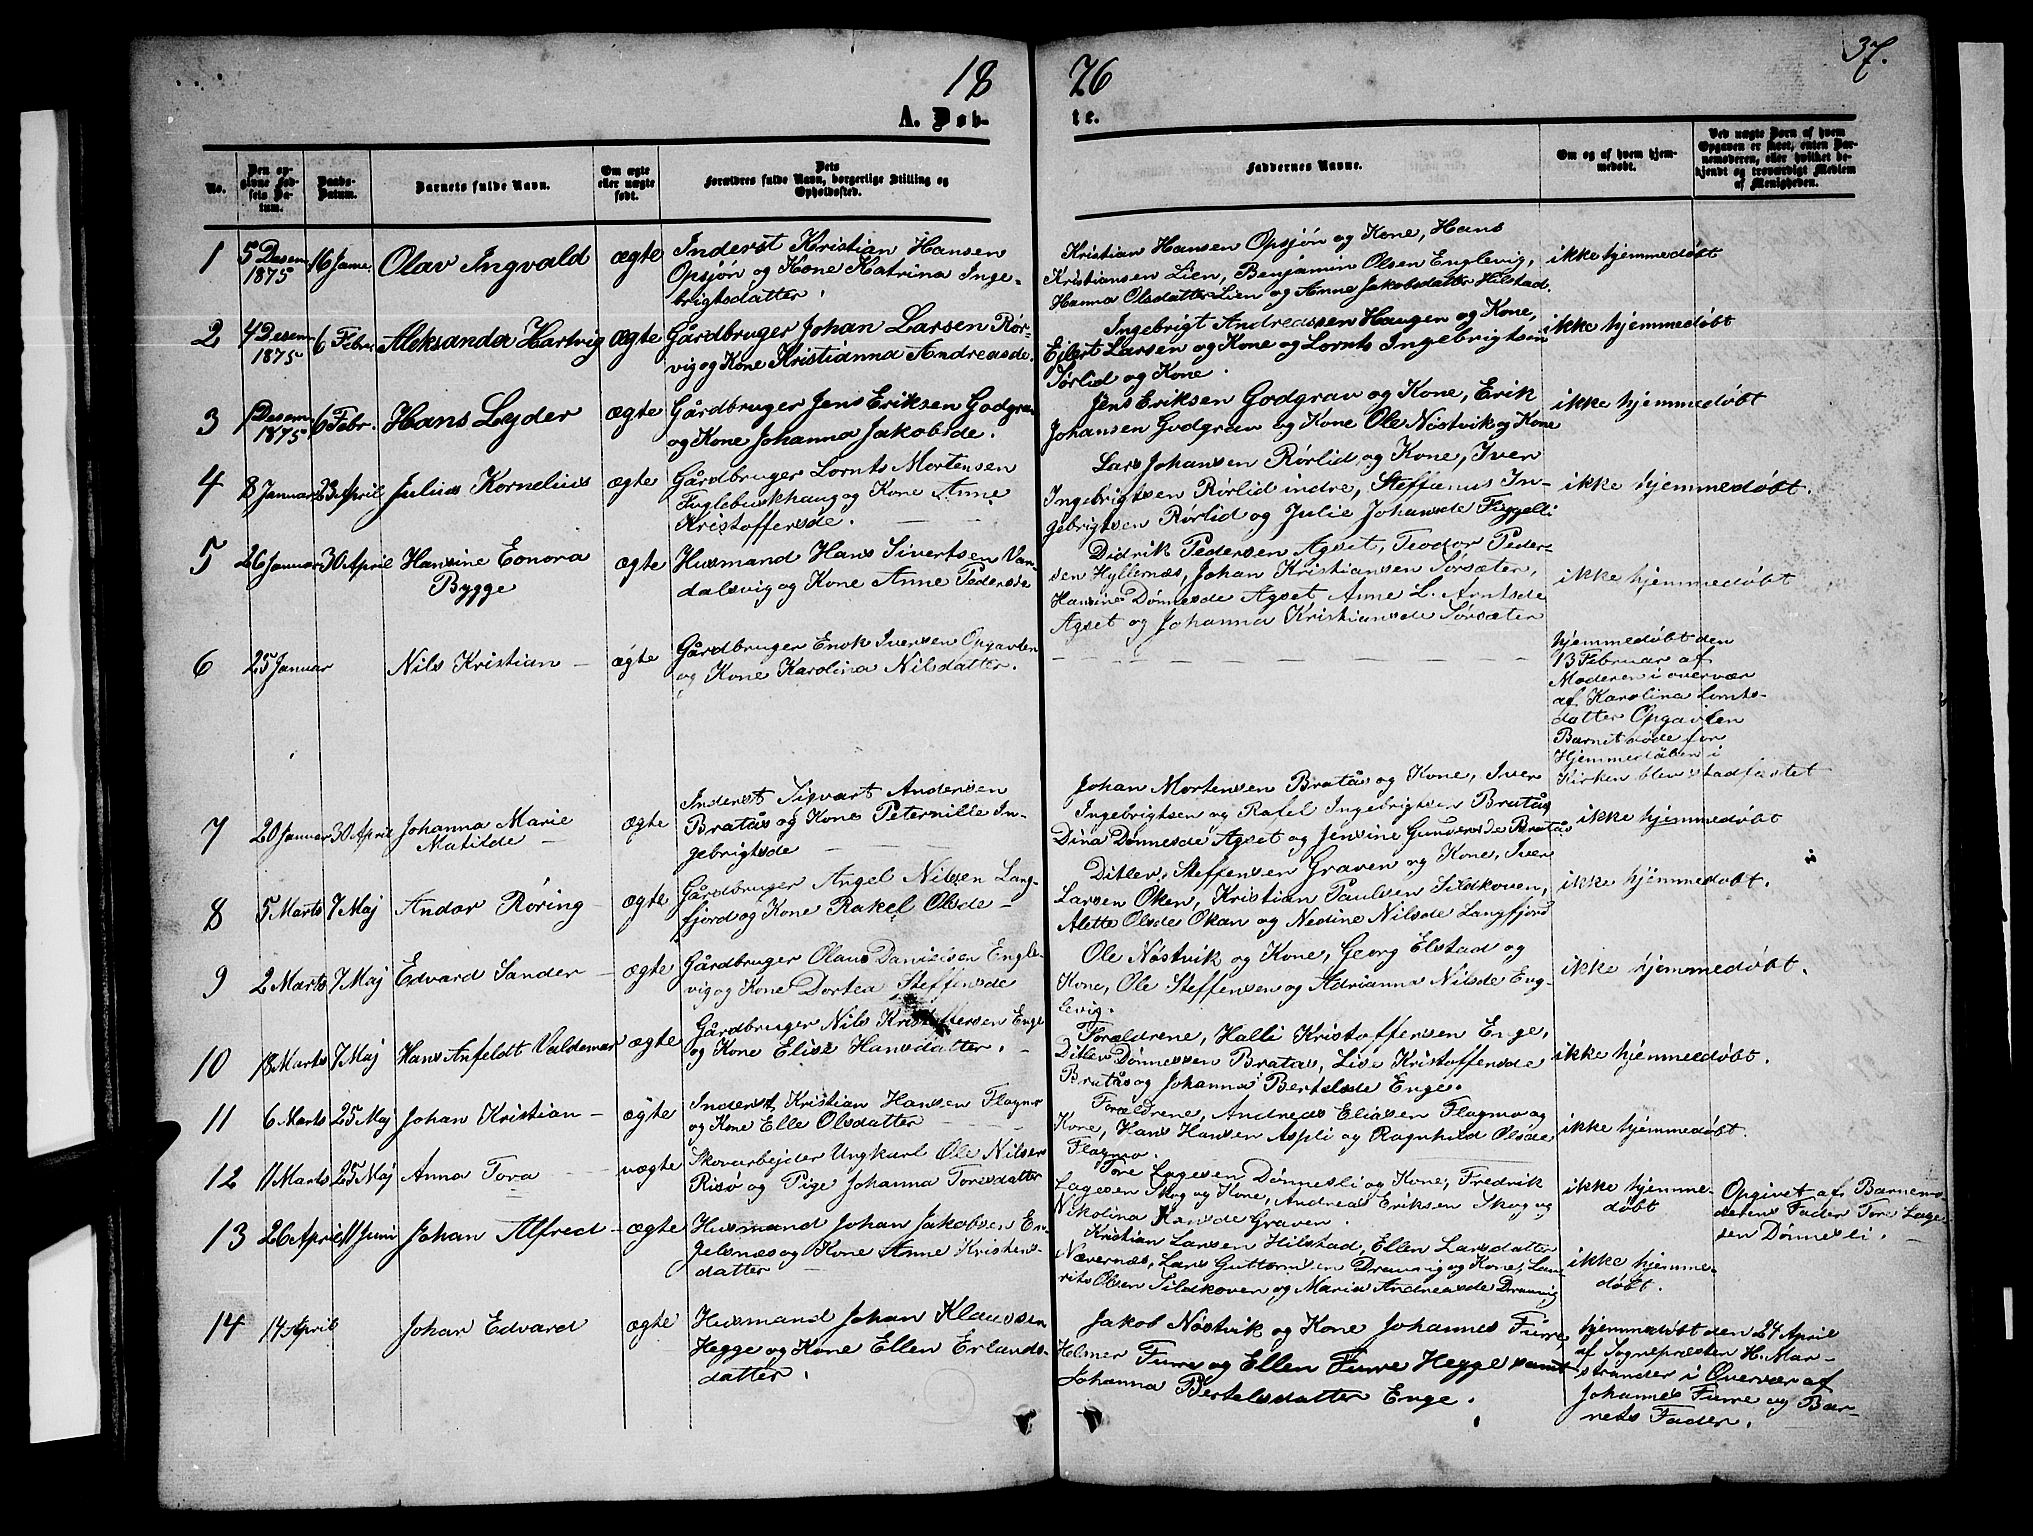 37.
18 76
A. Døb- te.
No.
Den opgivne Fødsels Datum.
Daabs-Datum.
Barnets fulde Navn.
Om ægte eller uægte født.
Dets Forældres fulde Navn, borgerlige Stilling og Opholdssted.
Faddernes Navne.
Om og af hvem hjemmedøbt.
Ved uægte Børn af hvem Opgaven er skeet, enten Barnemoderen, eller hvilket bekjendt og troværdigt Medlem af Menigheden.
1 5 Desem 1875 16 Janu. Olav Ingvald ægte
Inderst Kristian Hansen
Opsjøn og Kone Katrina Inge-
brigtsdatter.
Kristian Hansen Opsjøn og Kone, Hans
Kristiansen Lien, Benjamin Olsen Englevig,
Hanna Olsdatter Lien og Anne Jakobsdatter Hilstad.
ikke hjemmedøbt
2 4 Desem 1875 6 Febru. Aleksanda Hartvig ægte
Gårdbruger Johan Larsen Rør-
vig og Kone Kristianna Andreasde.
Ingebrigt Andreassen Haugen og Kone,
Ejlert Larsen og Kone og Lornts Ingebrigtsen
Sørlid og Kone.
ikke hjemmedøbt
3 1 Desem 1875 6 Febr. Hans Lyder ægte
Gårdbruger Jens Eriksen Godgrav
og Kone Johanna Jakobsde.
Jens Eriksen Godgrav og Kone, Erik
Johansen Godgrav og Kone Ole Nøstvik og Kone
ikke hjemmedøbt
4 8 Januar 23 April Julius Kornelius ægte
Gårdbruger Lornts Mortensen
Fuglebuskhaug og Kone Anne
Kristoffersde.
Lars Johansen Rørlid og Kone, Iver
Ingebrigtsen Rørlid indre, Steffanus In-
gebrigtsen Rørlid og Julie Johansde
ikke hjemmedøbt.
5 26 Januar 30 April Hansine Eonora
Bygge ægte
Husmand Hans Sivertsen Van-
dalsvig og Kone Anne Pedersde
Didrik Pedersen Agset, Teodor Peder-
sen Hyllernæs, Johan Kristiansen Sørsæter,
Hansine Dønnesde Agset Anne L. Arntsde
Agset og Johanna Kristiansde Sørsæter
ikke hjemmedøbt
6 25 Januar Nils Kristian – ægte
Gårdbruger Enok Iversen Opgavlen
og Kone Karolina Nilsdatter.
hjemmedøbt den
13 Februar af
Moderen i overvær
af Karolina Lornts-
datter Opgavlen
Barnet døde før
Hjemmedåben i
Kirken blev stadfæstet
7 20 Januar 30 April Johanna Marie
Matilde – ægte
Inderst Sigvart Andersen
Bratås og Kone Peternille In-
gebrigtsde
Johan Mortensen Bratås og Kone, Iver
Ingebrigtsen og Rafel Ingebrigtsen Bratås,
Dina Dønnesde Agset og Jensine Gundersde Bratås
ikke hjemmedøbt
8 5 Marts 7 Maj Andor Røring – ægte
Gårdbruger Angel Nilsen Lang-
fjord og Kone Rakel Olsde –
Ditlev Steffensen Graven og Kone, Iver
Larsen Oken, Kristian Paulsen Sildkoven,
Alette Olsde Okan og Nedine Nilsde Langfjord
ikke hjemmedøbt.
9 2 Marts 7 Maj Edvard Sander – ægte
Gårdbruger Olaus Danielsen Engle-
vig og Kone Dortea Steffensde
Ole Nøstvik og Kone, Georg Elstad og
Kone, Ole Steffensen og Adrianna Nilsde Eng-
levig.
ikke hjemmedøbt.
10 18 Marts 7 Maj Hans Anfeldt Valdemar ægte
Gårdbruger Nils Kristoffersen Enge
og Kone Elise Hansdatter. –
Forældrene, Halli Kristoffersen Enge,
Ditlev Dønnessen Bratås, Lise Kristoffersde
Bratås og Johanna Bertelsde Enge.
ikke hjemmedøbt.
11 6 Marts 25 Maj Johan Kristian – ægte
Inderst Kristian Hansen Flagmo
og Kone Elle Olsdatter
Forældrene, Andreas Eliasen Flagmo og
Kone, Hans Hansen Aspli og Ragnhild Olsde
Flagmo.
ikke hjemmedøbt.
12 11 Marts 25 Maj Anna Tora uægte
Skovarbejder Ungkarl Ole Nilsen
Risø og Pige Johanna Toresdatter
Tore Lagesen Dønnesli og Kone, Fredrik
Lagesen Skog og Kone, Andreas Eriksen Skog og
Nikolina Hansde Graven.
ikke hjemme-
døbt
Opgivet af Barnemo-
derens Fader Tore Lage-
sen Dønnesli.
13 26 April 11 Juni Johan Alfred – ægte
Husmand Johan Jakobsen En-
gelsnæs og Kone Anne Kristens-
datter
Kristian Larsen Hilstad, Ellen Larsdatter
Nævernæs, Lars Guttormsen Drauvig og Kone, Lau-
rits Olsen Sildkoven og Maria Andreasde Drauvig
ikke hjemme-
døbt.
14 14 April Johan Edvard ægte
Husmand Johan Klaussen
Hegge og Kone Ellen Erlands-
datter.
Jakob Nøstvik og Kone Johannes Furre,
Helmer Furre og Ellen Furre Hegge samt
Johanna Bertelsdatter Enge.
hjemmedøbt den 24 April
af Sognepræsten H. Mar-
strander i Overvær af
Johannes Furre og Bar-
nets Fader.